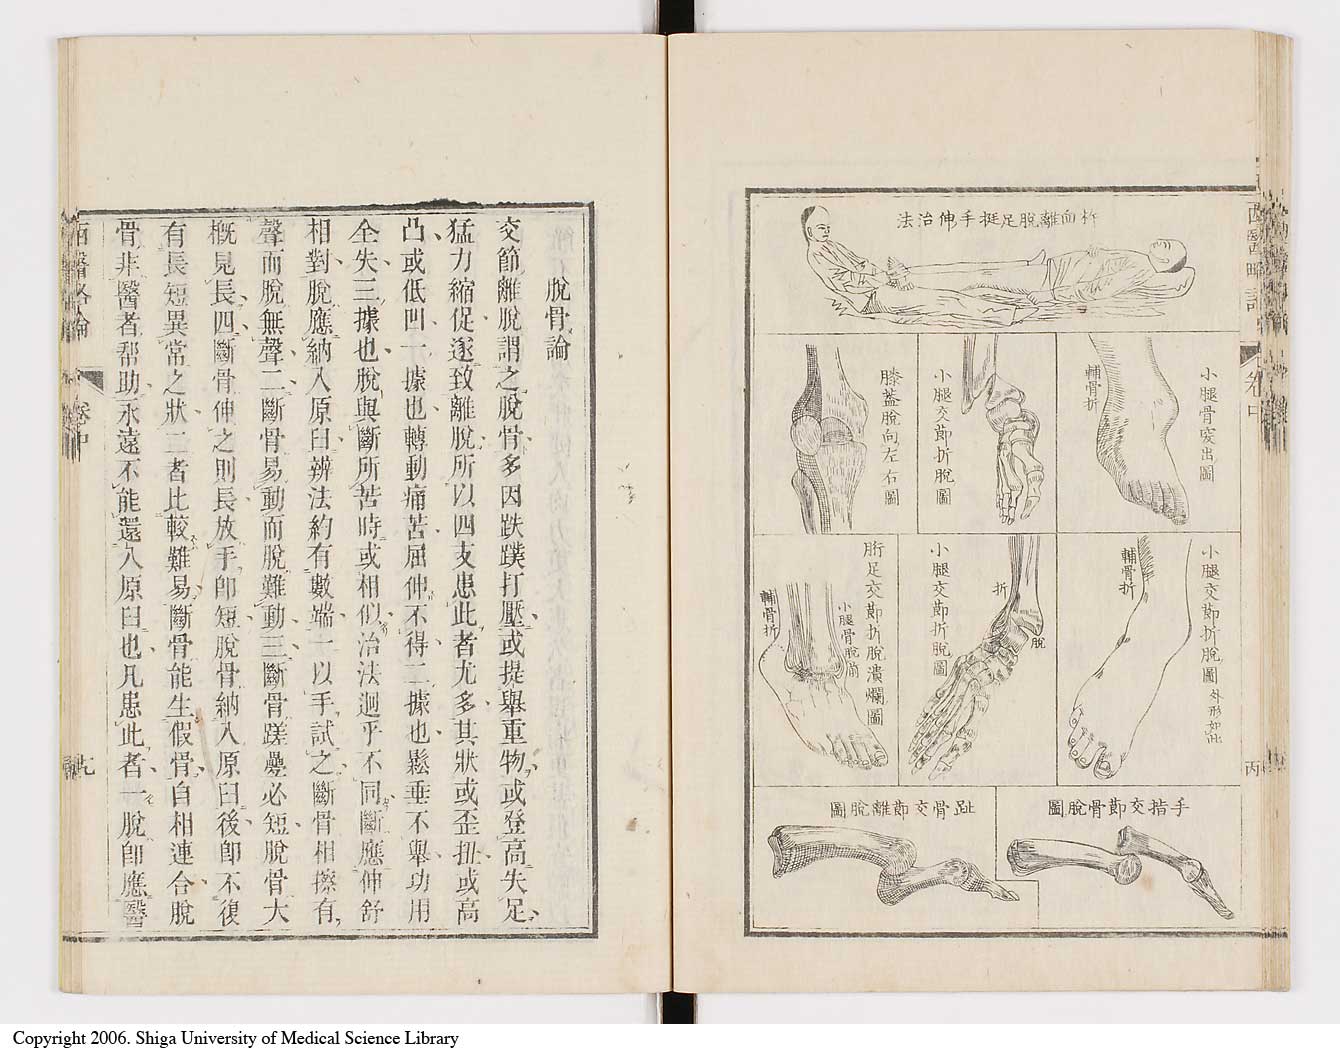 法治伸手挺足脫離面杵
小腿骨突出圖
輔骨折
小腿交節折脫圖
膝蓋脫向左右圖
小腿交節折脫圖外形如此
輔骨折
小腿交節折脫圖
折
脫
胻足交節折脫潰爛圖
小腿骨脫
輔骨折
圖脫骨節交指手
圖脫離節交骨趾
卷中
脫骨論
交節離脫謂之脫骨多因跌蹼打壓或提舉重物或登高失足
猛力縮促遂致離脫所以四支患此者尤多其狀或歪扭或高
凸或低凹一據也轉動痛苦屈伸不得二據也鬆垂不舉功用
全失三據也脫與斷所苦時或相似治法迥乎不同斷應伸舒
相對脫應納入原臼辨法約有數端一以手試之斷骨相擦有
聲而脫無聲二斷骨易動而脫難動三斷骨蹉疊必短脫骨大
概見長四斷骨伸之則長放手卽短脫骨納入原臼後卽不復
有長短異常之狀二者比較難易斷骨能生假骨自相連合脫
骨非醫者帮助永遠不能還入原臼也凡患此者一脫卽應醫
西醫略論
卷中
Copyright 2006. Shiga University of Medical Science Library